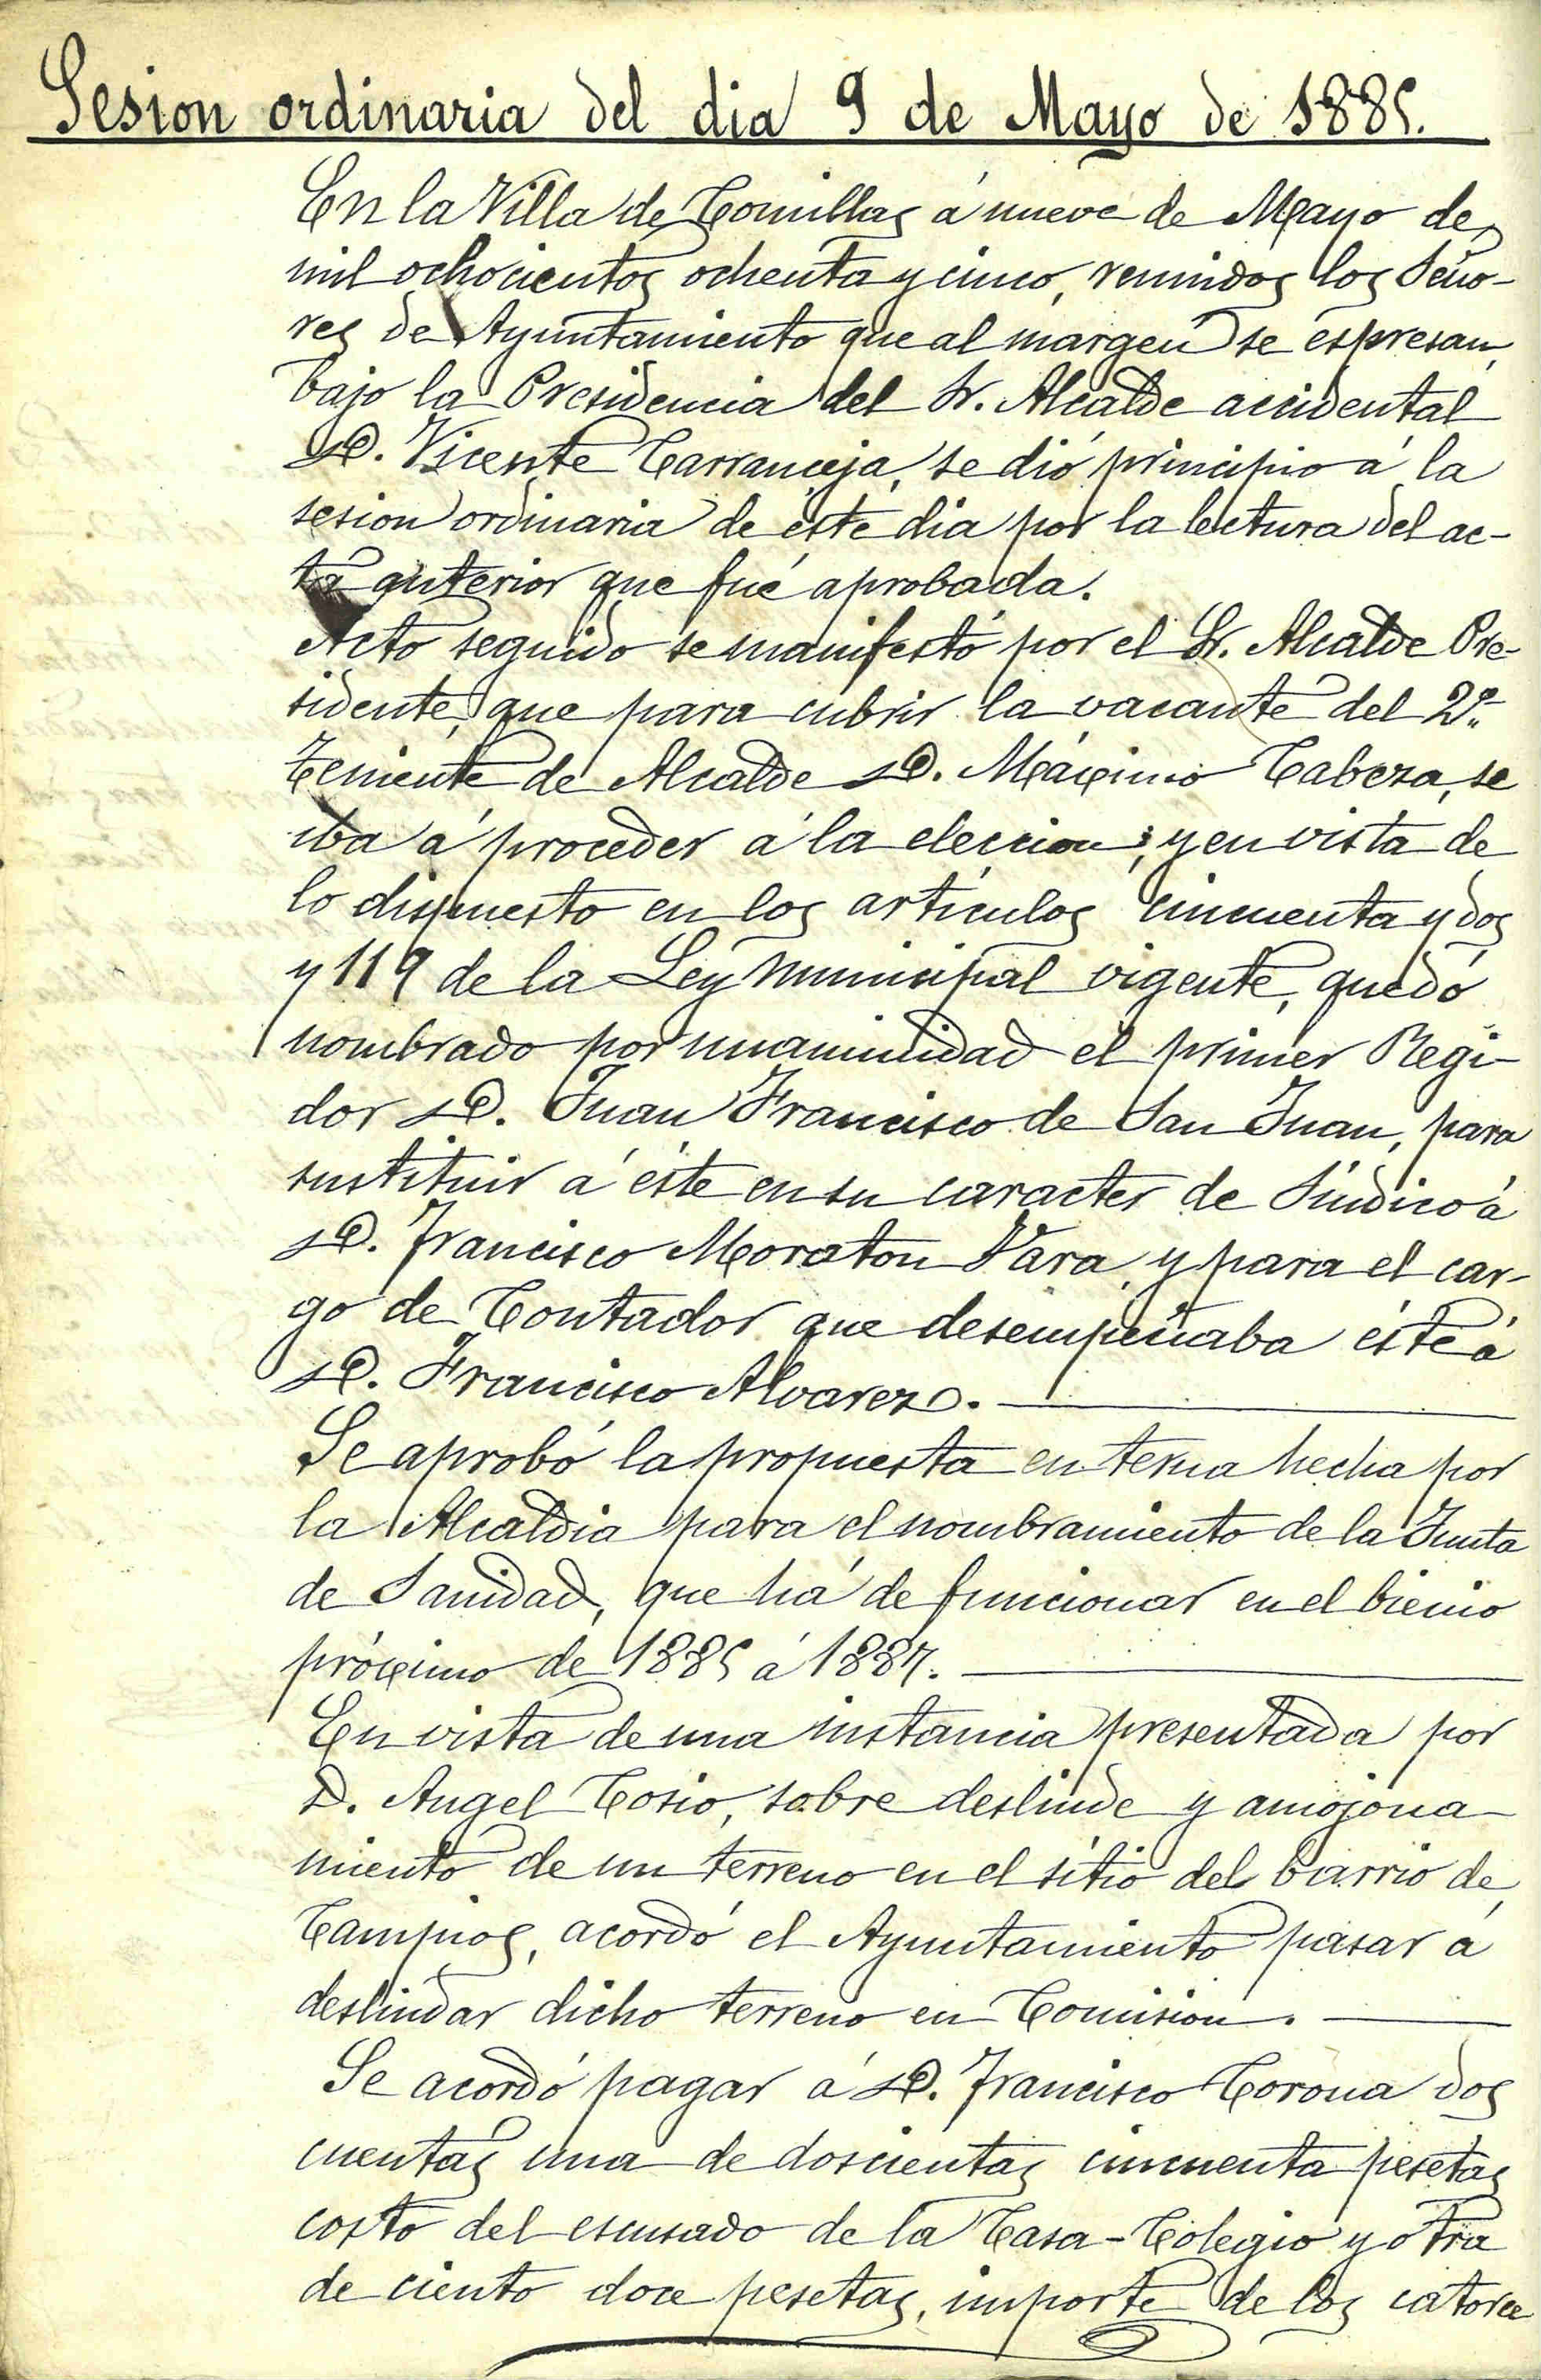 Sesion ordinaria del dia 9 de Mayo de 1885.
En la Villa de Comillas á nueve de Mayo de
mil ochocientos ochenta y cinco, reunidos los Seño-
res de Ayuntamiento que al margen se espresan,
bajo la Presidencia del Sr. Alcalde accidental
D. Vicente Carranceja, se dió principio á la
sesion ordinaria de éste dia por la lectura del ac-
ta anterior que fué aprobada.
Acto seguido se manifestó por el Sr. Alcalde Pre-
sidente, que para cubrir la vacante del 2º
Teniente de Alcalde D. Máximo Cabeza, se
iba á proceder á la eleccion; y en vista de
lo dispuesto en los artículos cincuenta y dos
y 119 de la Ley municipal vigente, quedó
nombrado por unanimidad el primer Regi-
dor D. Juan Francisco de San Juan, para
sustituir á éste en su caracter de Síndico á
D. Francisco Moraton Vara, y para el car-
go de Contador que desempeñaba éste á
D. Francisco Alvarez.
Se aprobó la propuesta en terna hecha por
la Alcaldia para el nombramiento de la Junta
de Sanidad, que há de funcionar en el bienio
próximo de 1885 á 1887.
En vista de una instancia presentada por
D. Angel Cosio, sobre deslinde y amojona-
miento de un terreno en el sitio del barrio de
Campios, acordó el Ayuntamiento pasar á
deslindar dicho terreno en Comision.
Se acordó pagar á D. Francisco Corona dos
cuentas una de doscientas cincuenta pesetas
costo del escusado de la Casa-Colegio y otra
de ciento doce pesetas, importe de los catorce